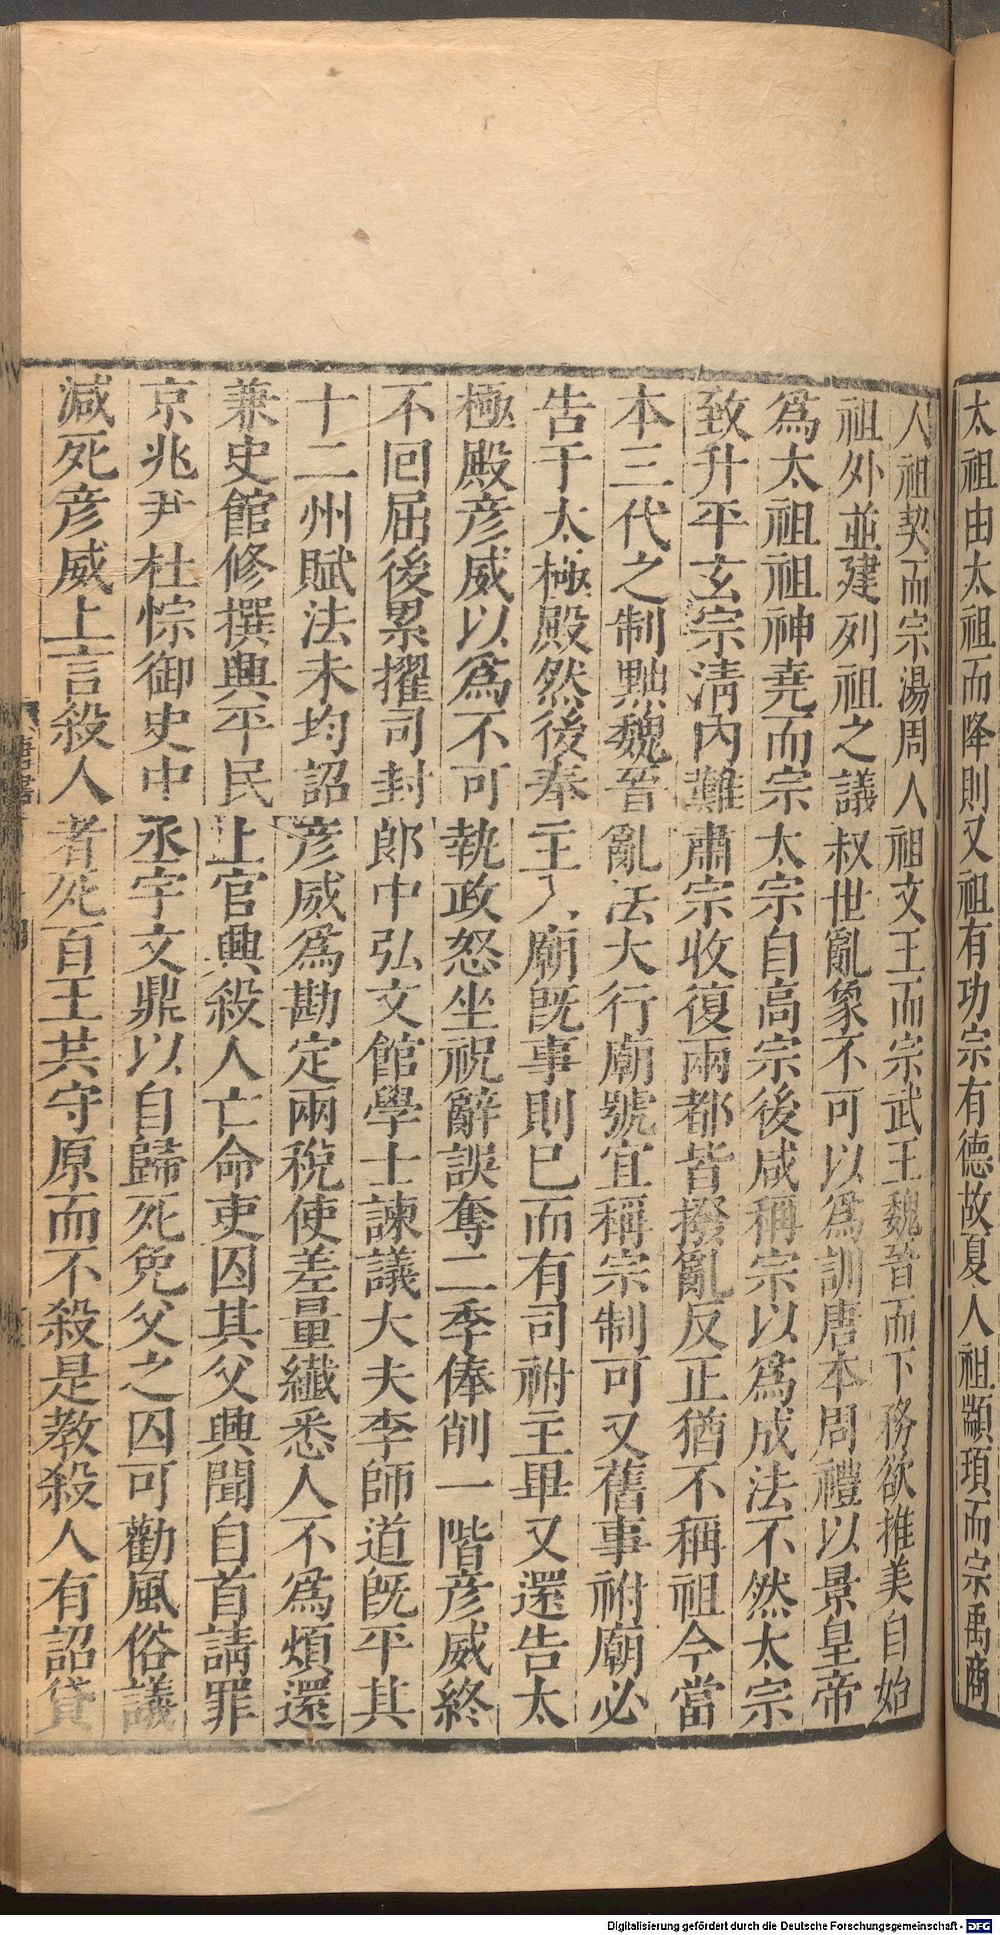 太祖由太祖而降則又祖有功宗有德故夏人祖顓頊而宗禹商
人祖契而宗湯周人祖文王而宗武王魏晉而下務欲推美自始
祖外並建列祖之議叔世亂象不可以爲訓唐本周禮以景皇帝
爲太祖祖神堯而宗太宗自高宗後咸稱宗以爲成法不然太宗
致升平玄宗清內難肅宗收復兩都皆撥亂反正猶不稱祖今當
本三代之制黜魏晉亂法大行廟號宜稱宗制可又舊事祔廟必
告于太極殿然後奉主入廟旣事則已而有司祔主畢又還告太
極殿彥威以爲不可執政怒坐祝辭誤奪二季俸削一階彥威終
不回屈後累擢司封郎中弘文館學士諫議大夫李師道旣平其
十二州賦法未均詔彥威爲勘定兩稅使差量纖悉人不爲煩還
兼史館修撰興平民上官興殺人亡命吏囚其父興聞自首請罪
京兆尹杜悰御史中丞宇文鼎以自歸死免父之囚可勸風俗議
減死彥威上言殺人者死百王共守原而不殺是教殺人有詔貸
Digitalisierung gefördert durch die Deutsche Forschungsgemeinschaft - DFG